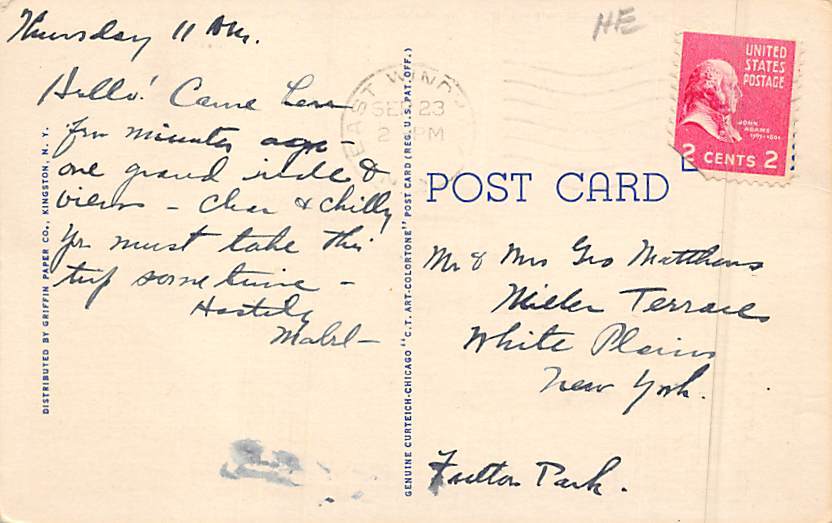 Thursday 11 AM.
Hello! Came here
few minutes ago -
one grand ride &
views - Clear & chilly
Yr must take this
trip sometime -
Hastily
Mabel -
DISTRIBUTED BY GRIFFIN PAPER CO., KINGSTON, N. Y.
GENUINE CURTEICH-CHICAGO "C. T. ART-COLORTONE" POST CARD (REG. U. S. PAT. OFF.)
HE
EAST WIND
SEP 23
2 PM
UNITED
STATES
POSTAGE
JOHN
ADAMS
1797-1801
2 CENTS 2
POST CARD
Mr & Mrs Geo Matthews
Miller Terrace
White Plains
New York.
Fulton Park.